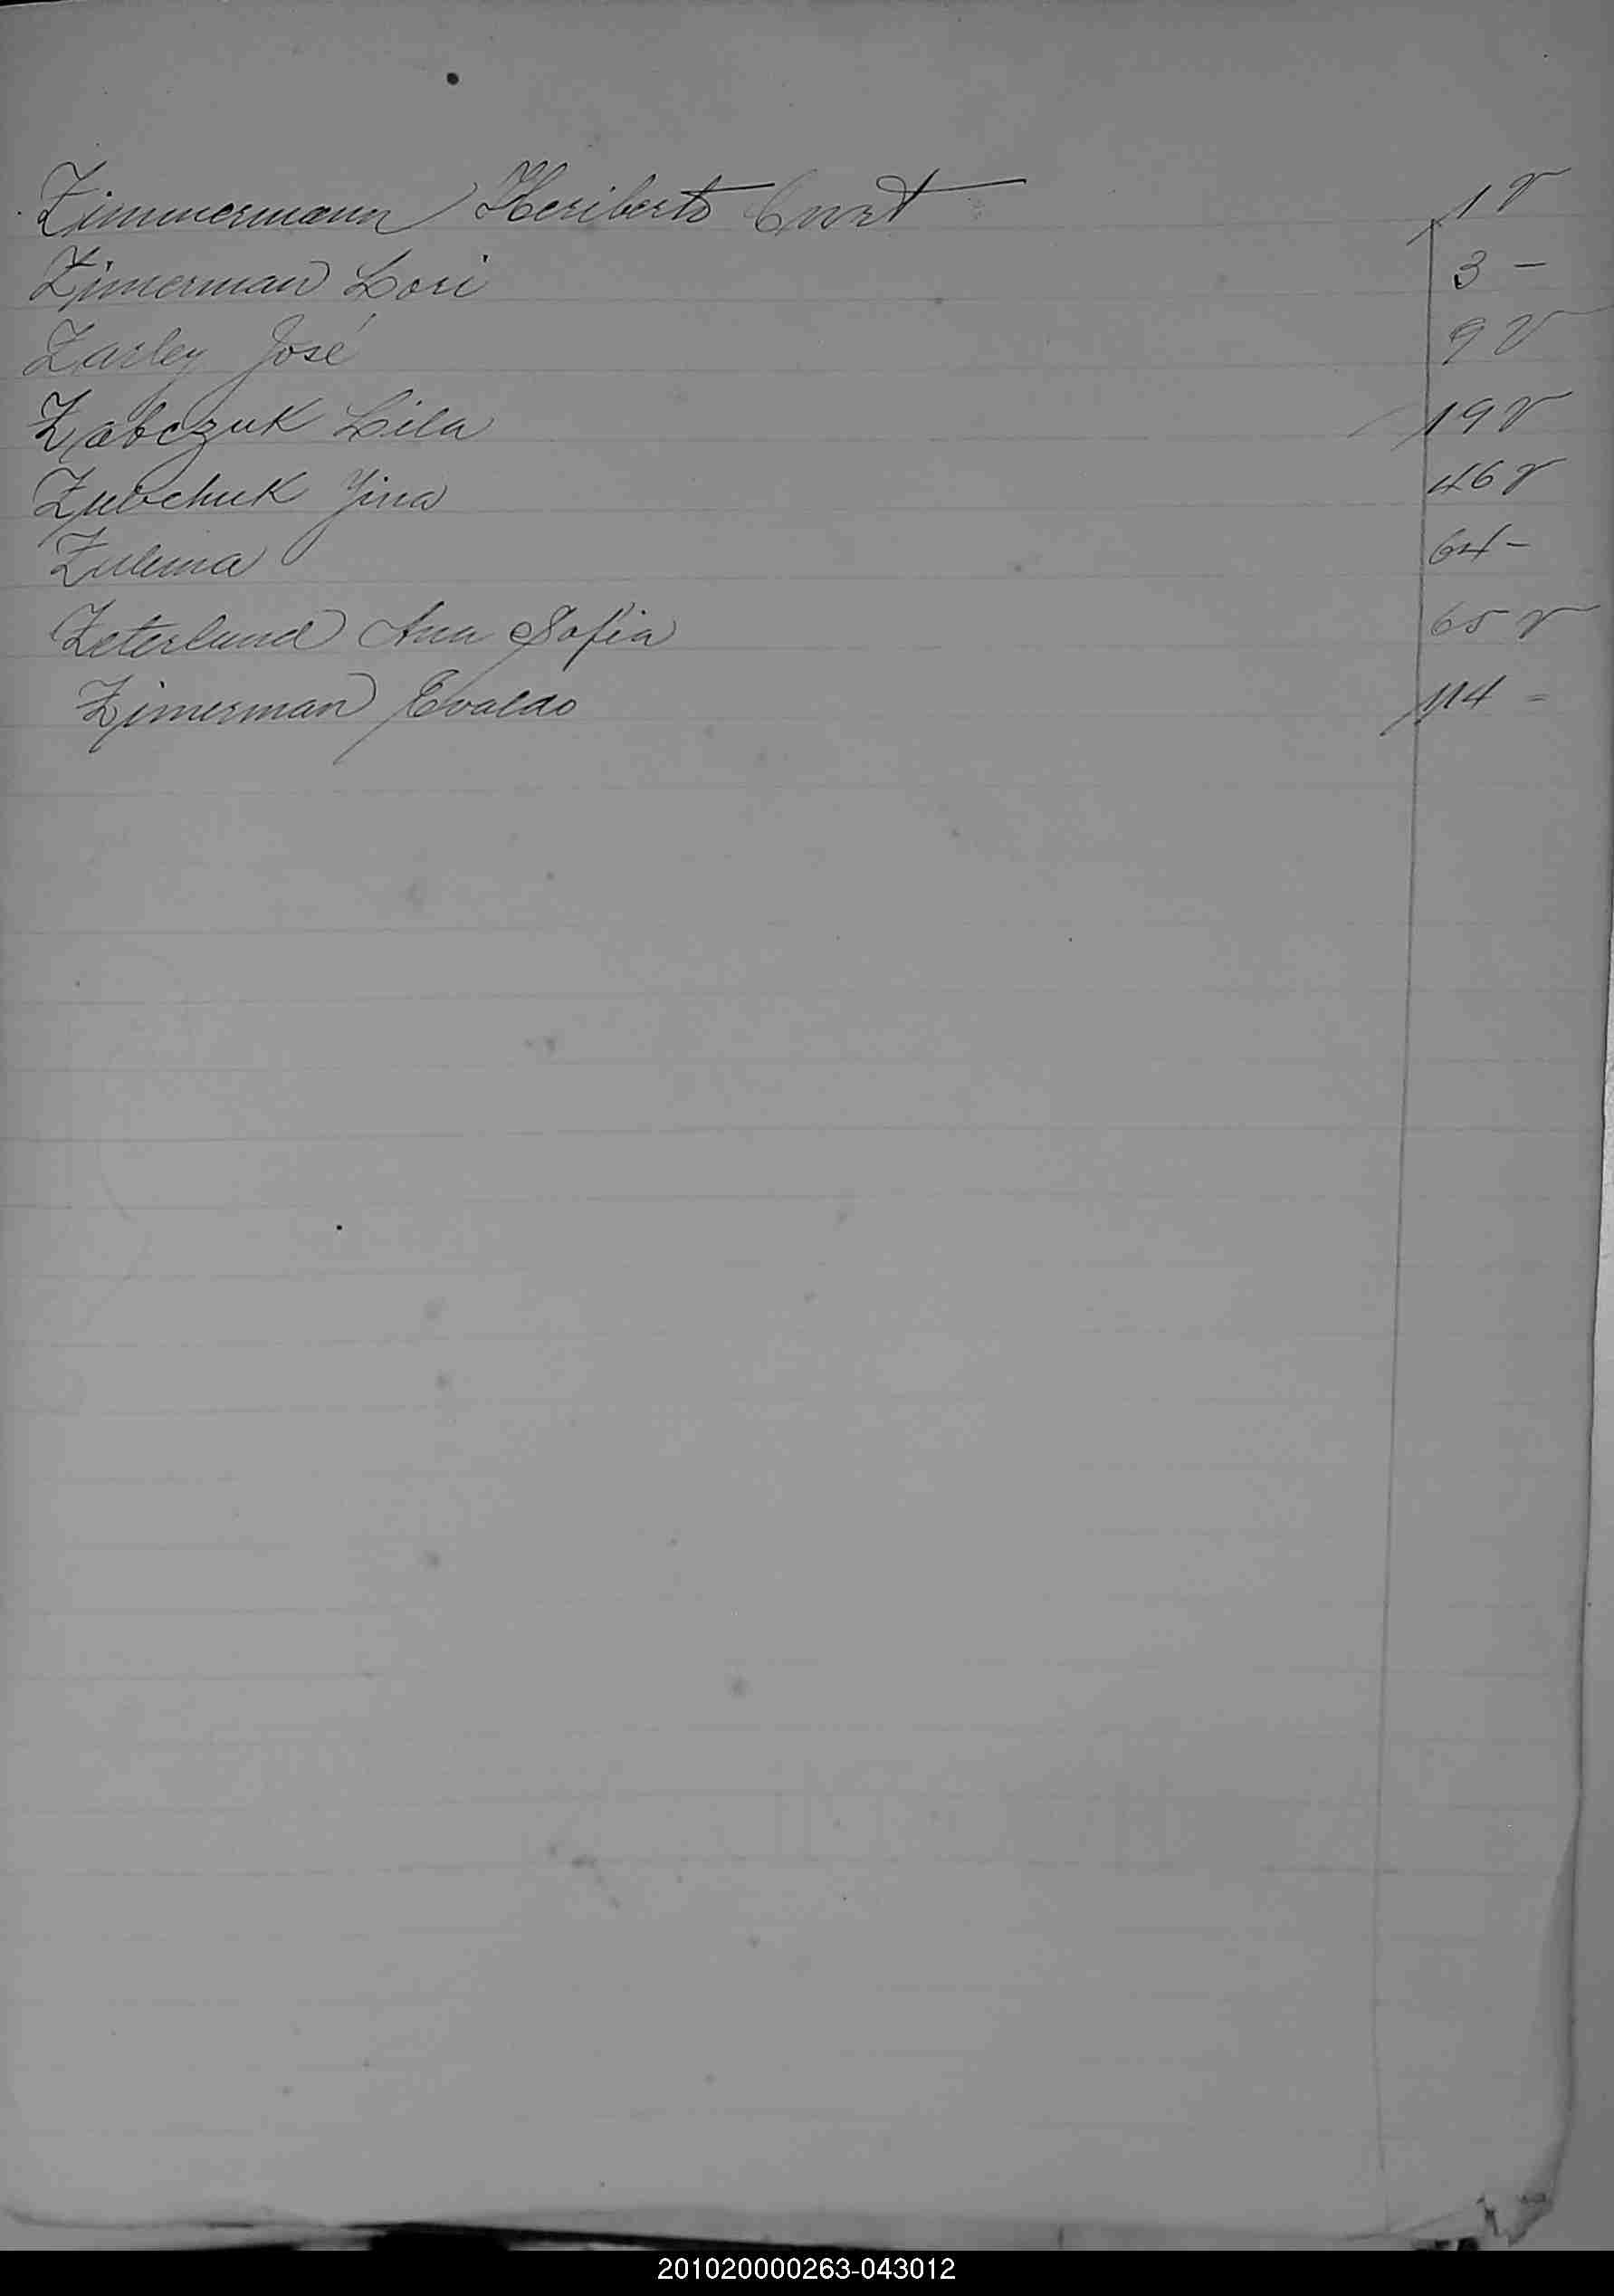 Zimmermann Heriberto Curt 1 v
Zimerman Lori 3 -
Zarley José 9 v
Zabczuk Lila 19 v
Zubchuk Yina 46 v
Zulema 64 -
Zeterlund Ana Sofia 65 v
Zimerman Evaldo 114 =
201020000263-043012